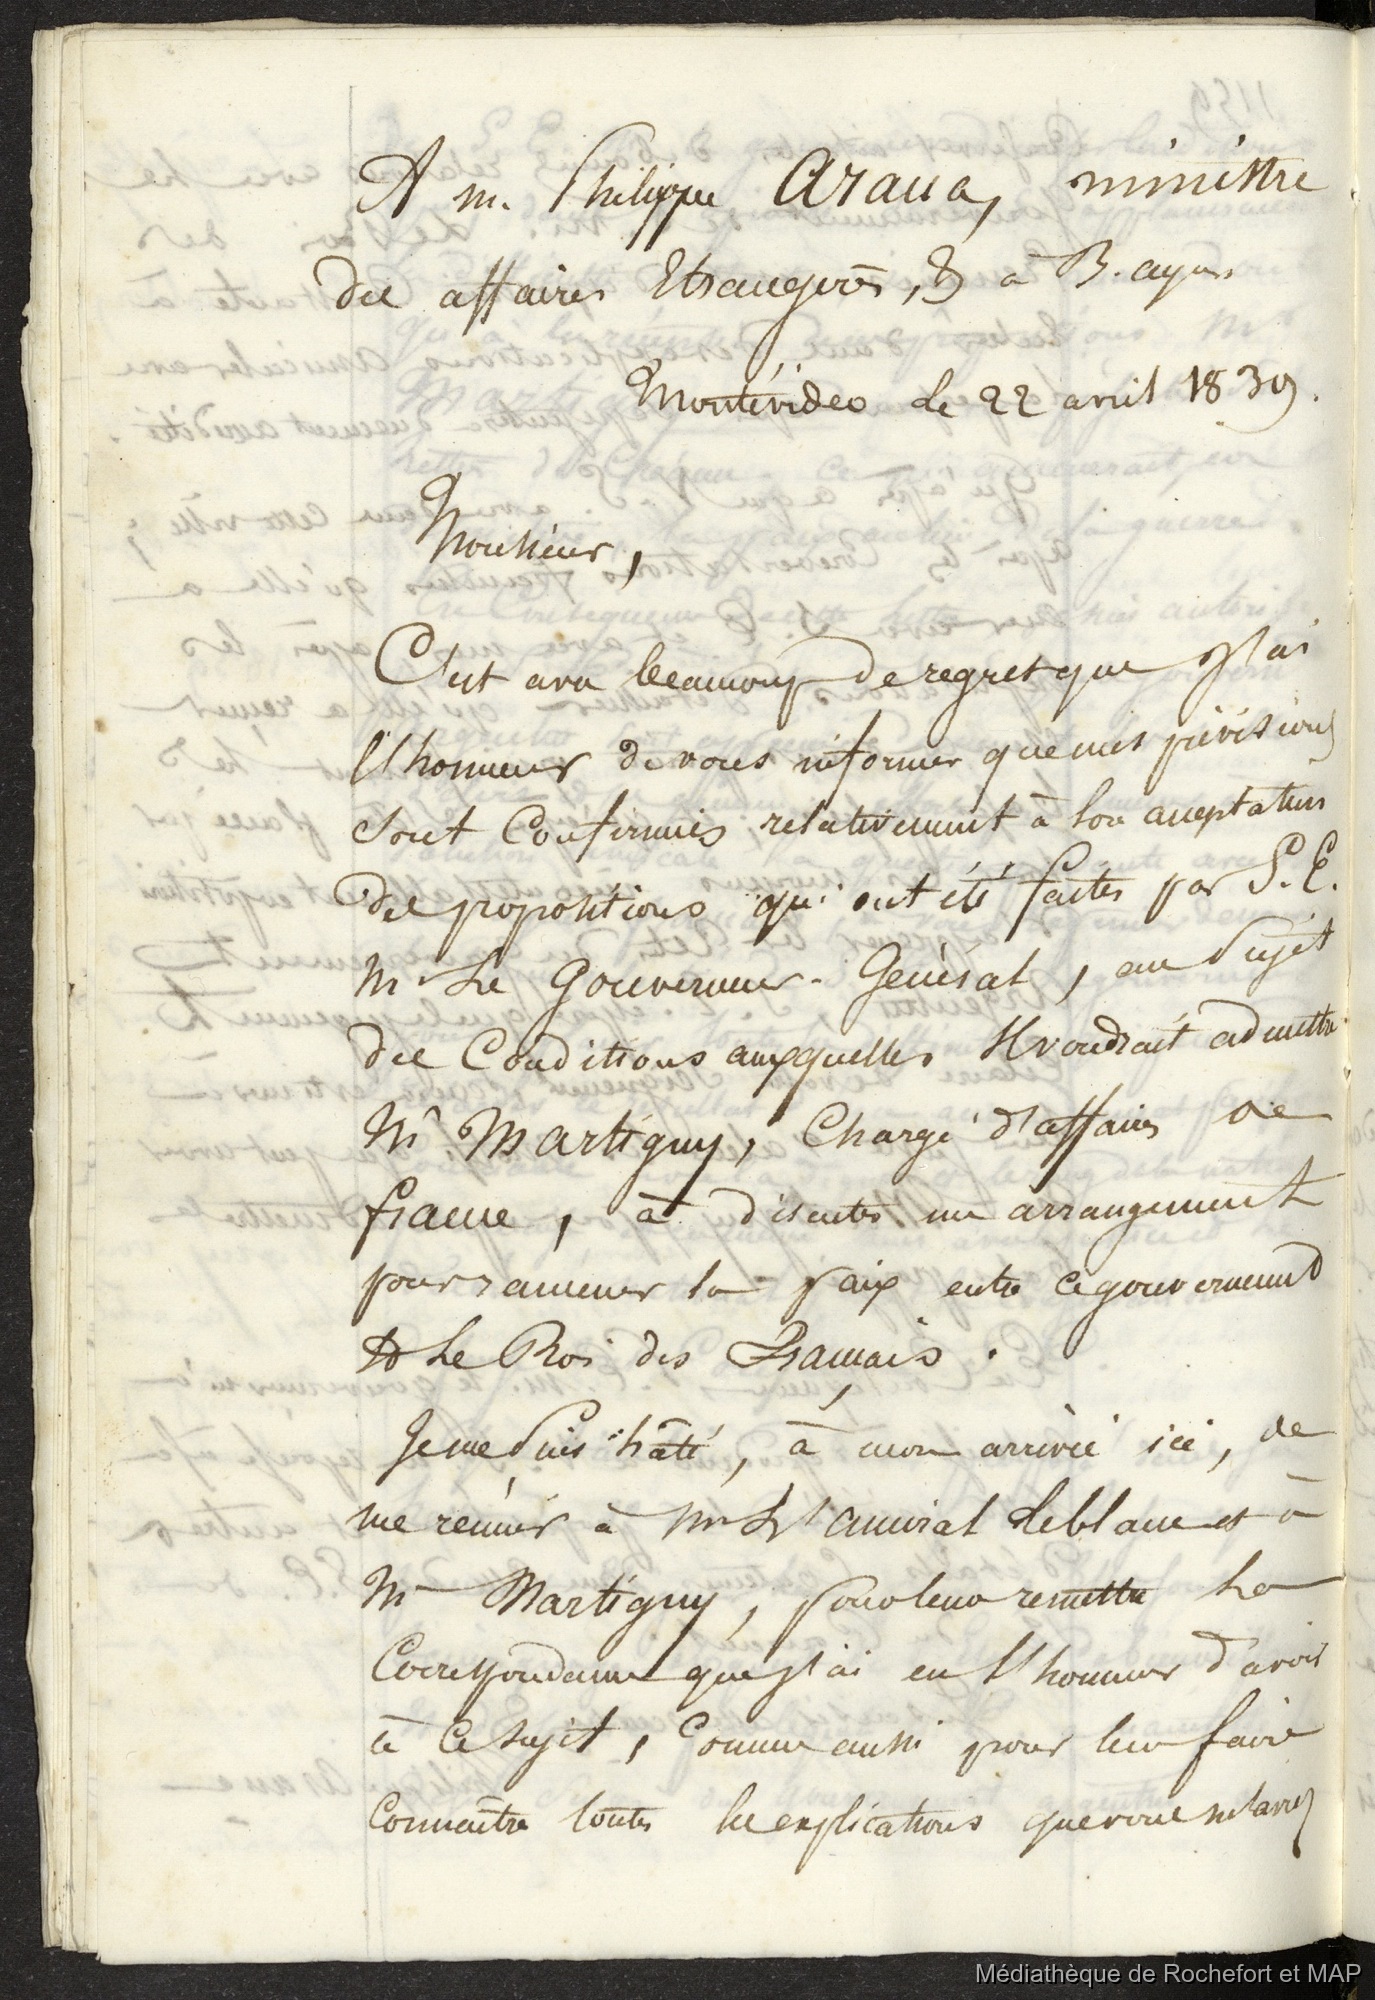 A m. Philippe Arana, ministre
des affaires Etrangères, & à B. ayres
Montévideo le 22 avril 1839.
Monsieur,
C'est avec beaucoup de regret que j'ai
l'honneur de vous informer que mes prévisions
sont confirmées relativement à la acceptation
des propositions qui ont été faites par S. E.
Mr Le Gouverneur-Général, au sujet
des Conditions auxquelles Il voudrait admettre
Mr Martigny, Chargé d'affaires de
france, à discuter un arrangement
pour ramener la paix entre ce gouvernement
& Le Roi des Français.
Je me suis hâté, à mon arrivée ici, de
me réunir à Mr L'amiral Leblanc et à
Mr Martigny, pour leur remettre la
Correspondance que j'ai eu l'honneur d'avoir
à ce sujet, Comme aussi pour leur faire
Connaître toutes les explications que vous m'avez
Médiathèque de Rochefort et MAP